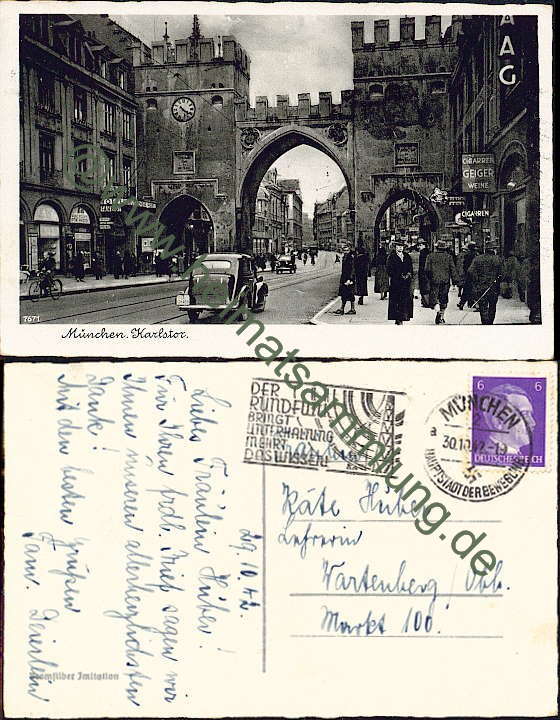 AAG
CIGARREN
GEIGER
WEINE
CIGARREN
7671
München. Karlstor.
www.heimatsammlung.de
DER
RUNDFUNK
BRINGT
UNTERHALTUNG
MEHRT
DAS WISSEN!
MÜNCHEN
2
a 30.10.42
HAUPTSTADT DER BEWEGUNG
6 6
DEUTSCHES REICH
29.10.42.
Liebes Fräulein Huber!
Für Ihren frdl. Brief sagen wir
Ihnen unseren allerherzlichsten
Dank!
Mit den besten Grüßen
Fam.
Käte Huber
Lehrerin
Wartenberg / Obb.
Markt 100.
Bromsilber Imitation